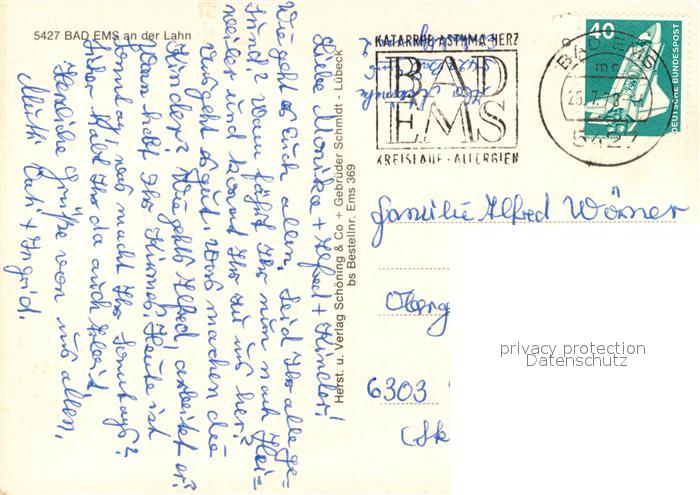 5427 BAD EMS an der Lahn
Liebe Monika + Alfred + Kinder!
Wie geht es Euch allen. Seid Ihr alle ge-
sund? Wann fährt Ihr nun nach Hei-
weiler und kommt Ihr zu uns her?
Uns geht es gut. Was machen die
Kinder? Wie gehts Alfred, arbeitet er?
Wann habt Ihr Kirmes. Heute ist
Sonntag, was macht Ihr Sonntags?
Ihr da auch Kleid.
Herzliche Grüße von uns allen,
Mutti + Ingrid.
Herst. u. Verlag Schöning & Co + Gebrüder Schmidt - Lübeck
bs Bestellnr. Ems 369
KATARRHE·ASTHMA·HERZ
BAD
EMS
KREISLAUF·ALLERGIEN
BAD EMS
mc
5427
40
DEUTSCHE BUNDESPOST
Familie Alfred Wörner
Oberg
6303
privacy protection
Datenschutz